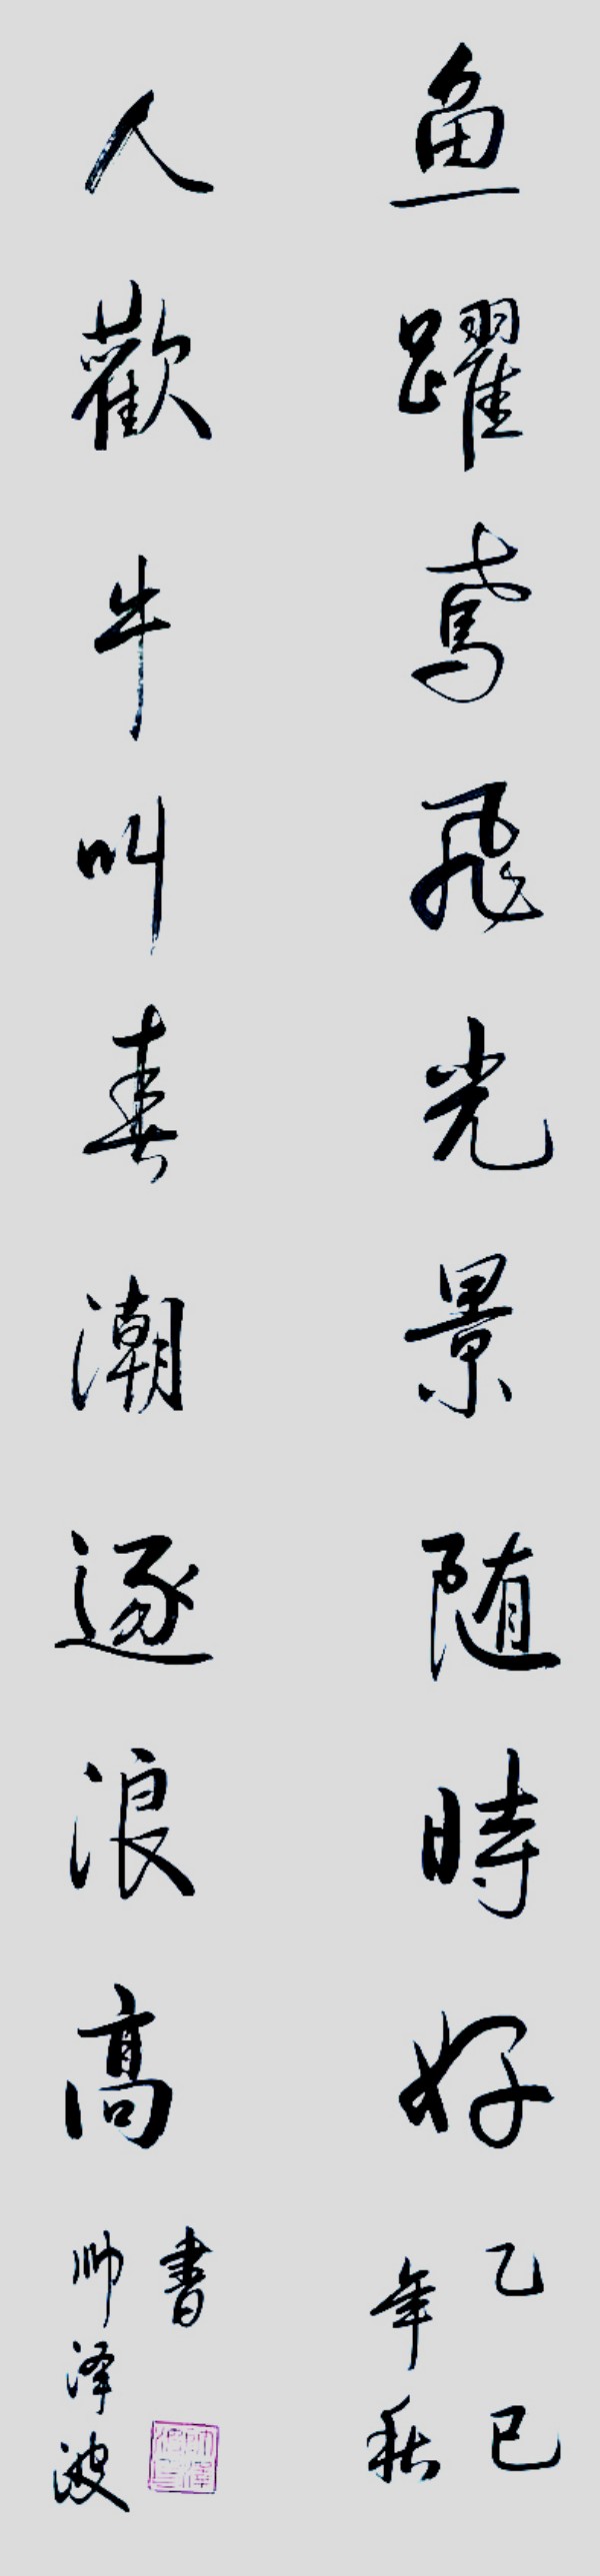 鱼躍鸢飛光景随時好
乙巳
年秋
人歡牛叫春潮逐浪高
書
帅泽波